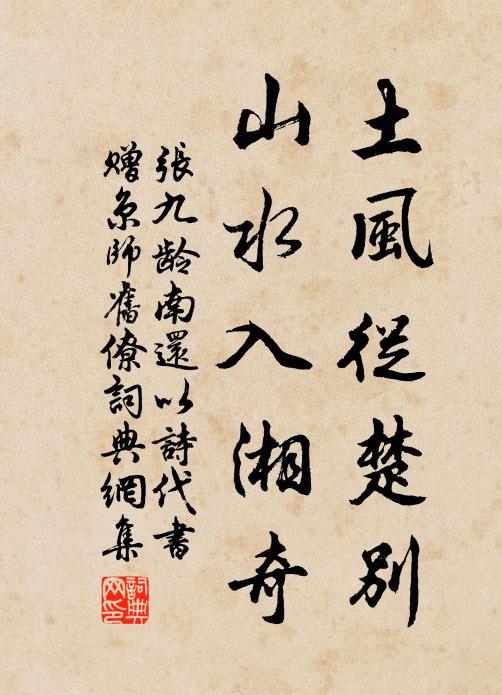 土風從楚別
山水入湘奇
張九齡南還以詩代書
贈京師舊僚詞典網集
詞典網印